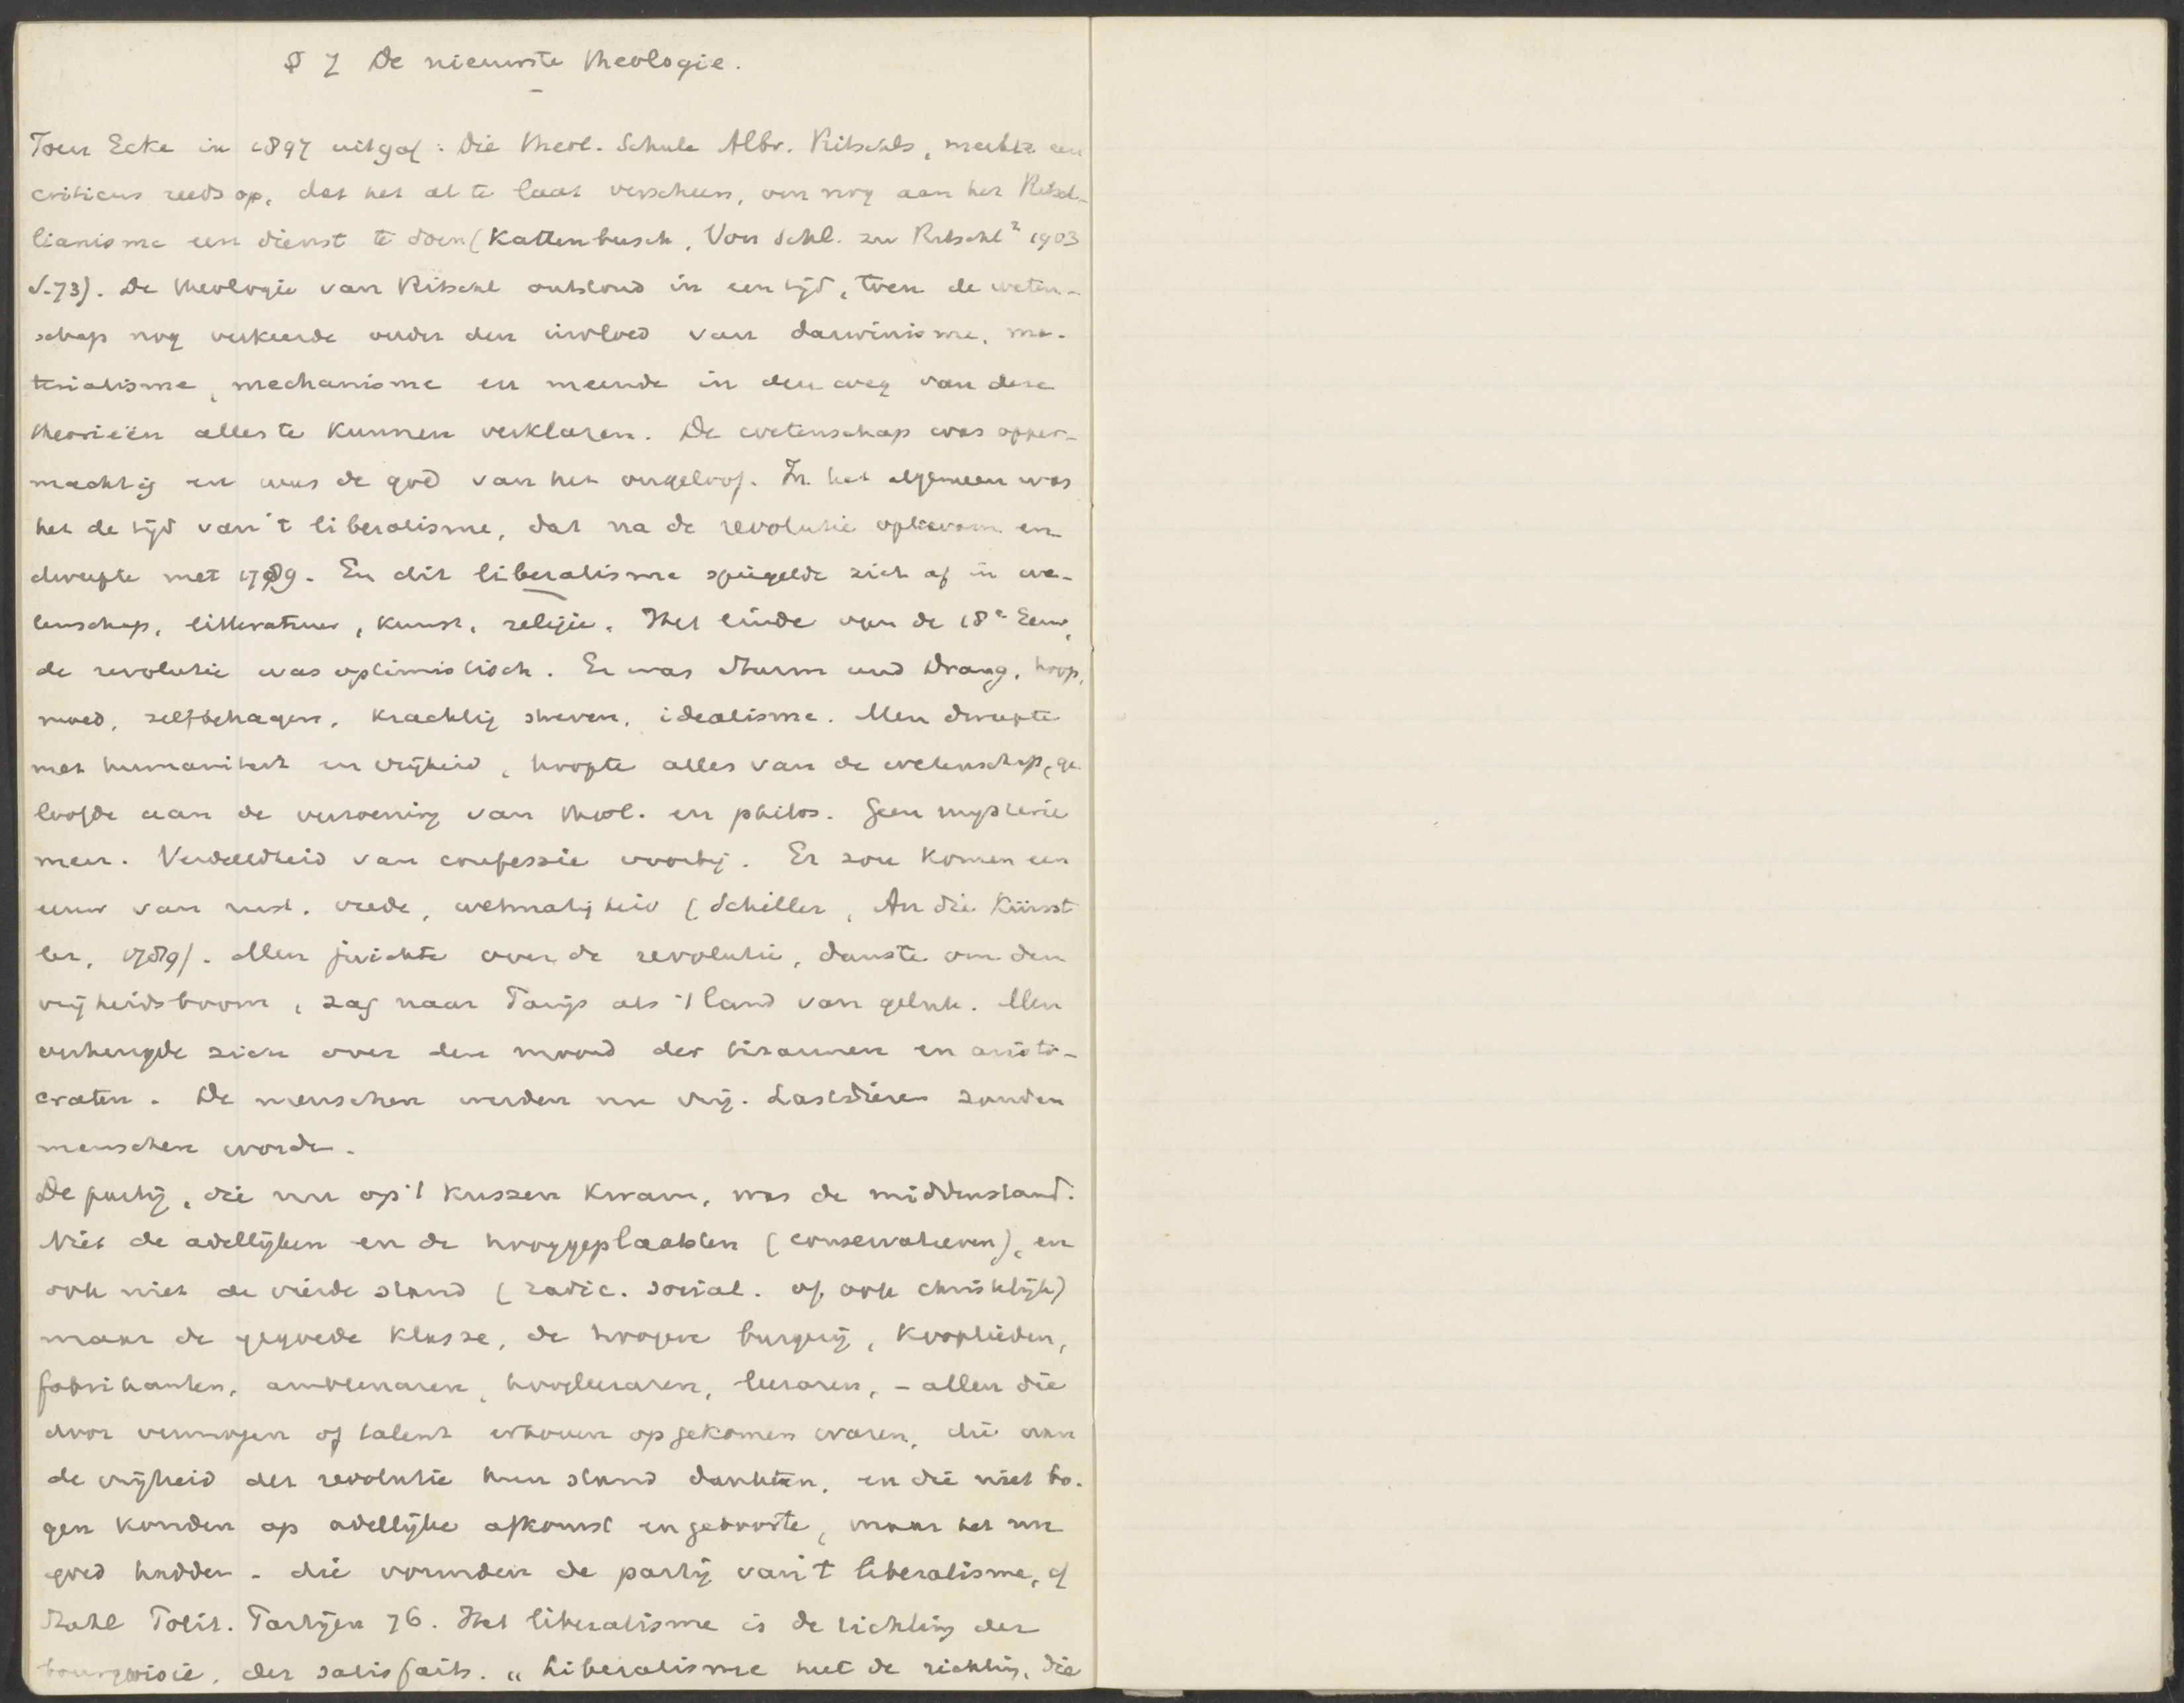 § 7 De nieuwste theologie.
Toen Ecke in 1897 uitgaf: Die theol. Schule Albr. Ritschls, merkte een
criticus reeds op, dat het al te laat verscheen, om nog aan het Ritsch-
lianisme een dienst te doen (Kattenbusch, Von Schl. zu Ritschl² 1903
S. 73). De theologie van Ritschl ontstond in een tijd, toen de weten-
schap nog verkeerde onder den invloed van darwinisme, ma-
terialisme, mechanisme en meende in den weg van deze
theorieën alles te kunnen verklaren. De wetenschap was opper-
machtig en was de god van het ongeloof. In het algemeen was
het de tijd van 't liberalisme, dat na de revolutie opkwam en
dweepte met 1789. En dit liberalisme spiegelde zich af in we-
tenschap, litteratuur, kunst, religie. Het einde van de 18e Eeuw,
de revolutie was optimistisch. Er was Sturm und Drang, hoop,
moed, zelfbehagen, krachtig streven, idealisme. Men dweepte
met humaniteit en vrijheid, hoopte alles van de wetenschap, ge-
loofde aan de verzoening van theol. en philos. Geen mysterie
meer. Verdeeldheid van confessie voorbij. Er zou komen een
eeuw van rust, vrede, wetmatigheid (Schiller, An die Künst
ler, 1789). Men juichte over de revolutie, danste om den
vrijheidsboom, zag naar Parijs als 't land van geluk. Men
verheugde zich over den moord der tirannen en aristo-
craten. De menschen werden nu vrij. Lastdieren zouden
menschen worden.
De partij, die nu op 't kussen kwam, was de middenstand.
Niet de adellijken en de hooggeplaatsten (conservatieven), en
ook niet de vierde stand (radic. social. of ook christelijk)
maar de gegoede klasse, de hoogere burgerij, kooplieden,
fabrikanten, ambtenaren, hoogleeraren, leeraren, - allen die
door vermogen of talent erboven opgekomen waren, die aan
de vrijheid der revolutie hun stand dankten, en die niet bo-
gen konden op adellijke afkomst en geboorte, maar het nu
goed hadden - die vormden de partij van 't liberalisme, cf
Stahl Polit. Partijen 76. Het liberalisme is de richting der
bourgeoisie, der satisfaits. „Liberalisme heet de richting, die